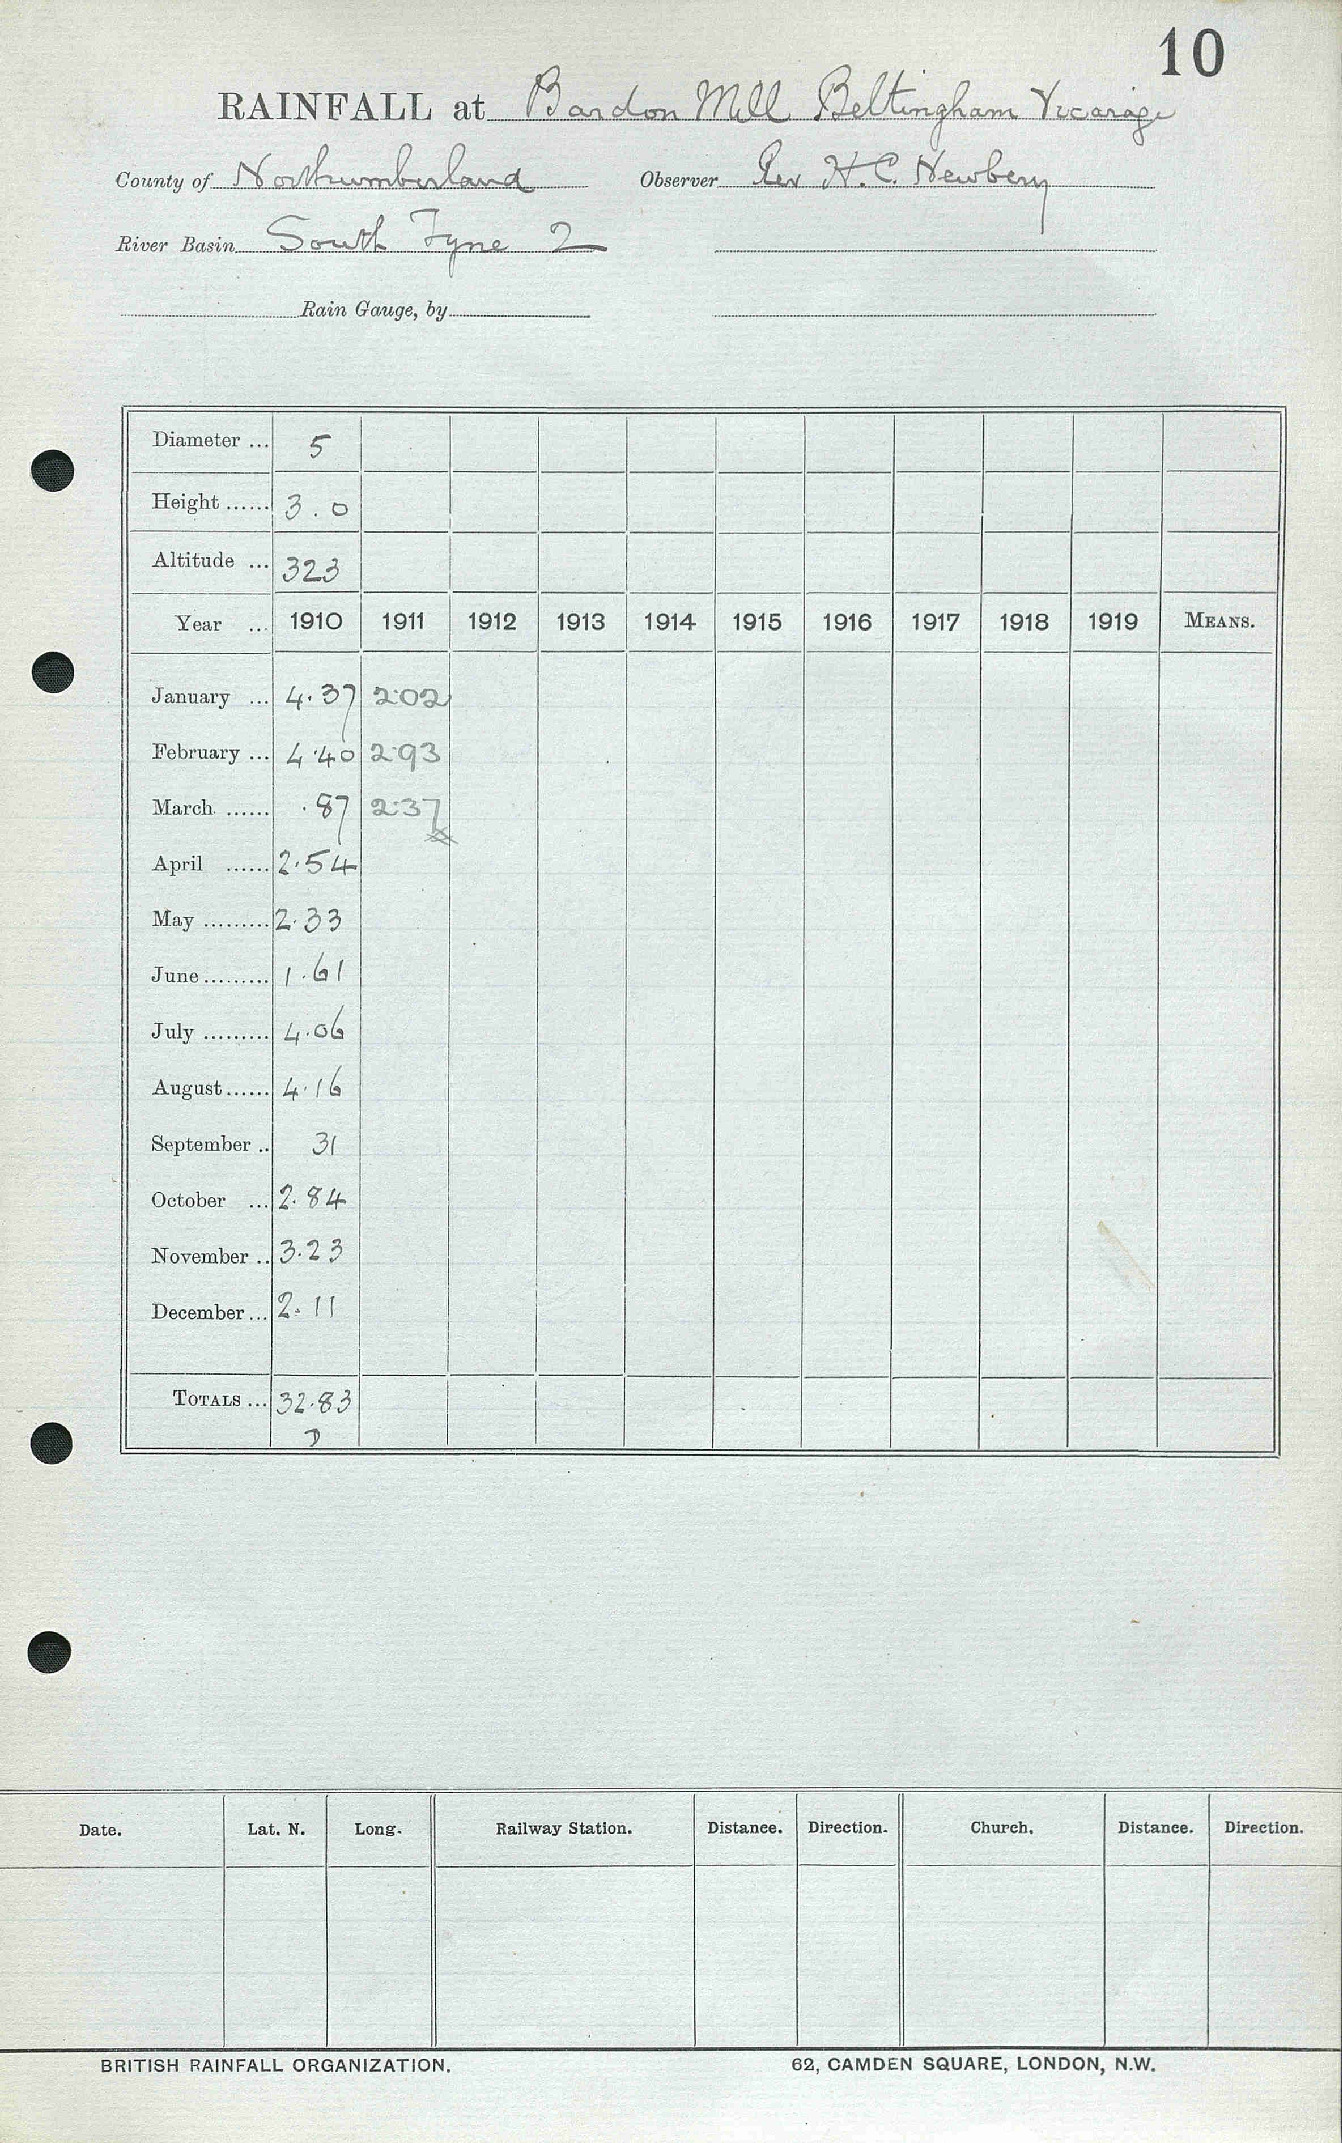 10
RAINFALL at Bardon Mill Beltingham Vicarage
County of Northumberland Observer Rev H. C. Newbery
River Basin South Tyne 2
Rain Gauge, by
Diameter ... 5
Height ...... 3.0
Altitude ... 323
Year ... 1910 1911 1912 1913 1914 1915 1916 1917 1918 1919 MEANS.
January ... 4.37 2.02
February ... 4.40 2.93
March ...... .87 2.37
April ...... 2.54
May ......... 2.33
June ......... 1.61
July ......... 4.06
August ...... 4.16
September .. 31
October ... 2.84
November .. 3.23
December ... 2.11
TOTALS ... 32.83
D
Date. Lat. N. Long. Railway Station. Distance. Direction. Church. Distance. Direction.
BRITISH RAINFALL ORGANIZATION. 62, CAMDEN SQUARE, LONDON, N.W.